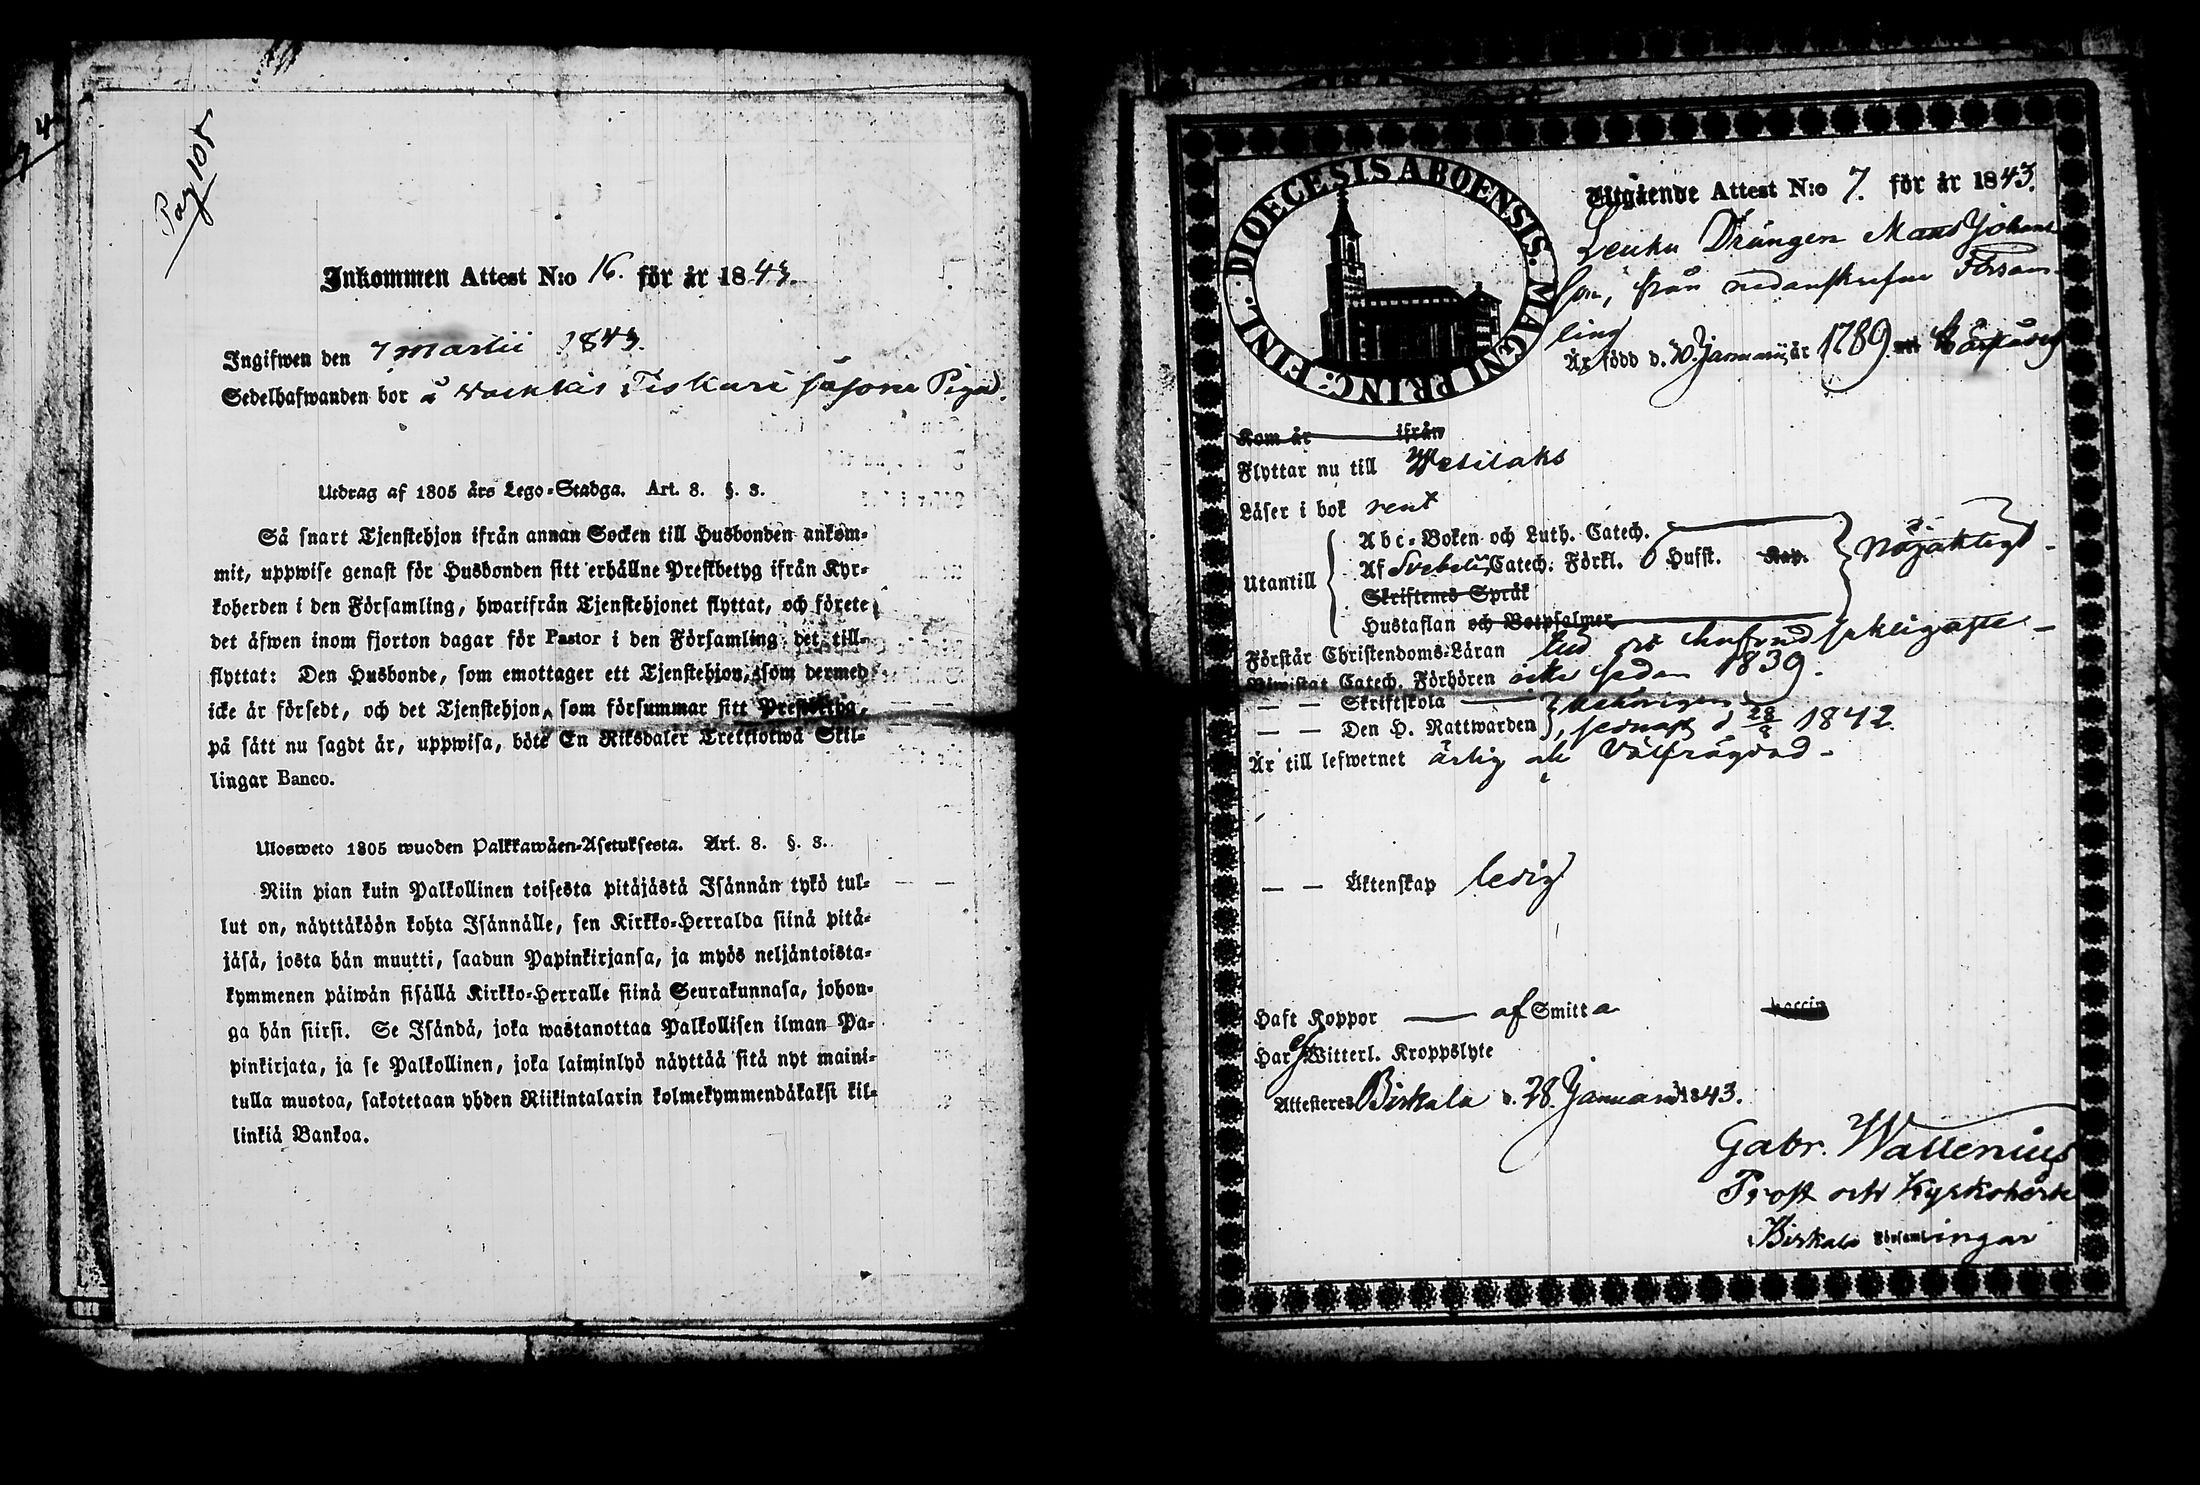 Pag 105
Inkommen Attest N:o 16. för år 1843.
Ingifwen den 7 Martii 1843.
Sedelhafwanden bor å
Utdrag af 1805 års Lego-Stadga. Art. 8. §. 8.
Så snart Tjenstehjon ifrån annan Socken till Husbonden ankom-
mit, uppwise genast för Husbonden sitt erhållne Prestbetyg ifrån Kyr-
koherden i den Församling, hwarifrån Tjenstehjonet flyttat, och förete
det äfwen inom fjorton dagar för Pastor i den Församling det till-
flyttat: Den Husbonde, som emottager ett Tjenstehjon, som dermed
icke är försedt, och det Tjenstehjon, som försummar sitt Prestbetyg,
på sätt nu sagdt är, uppwisa, böte En Riksdaler Trettiotwå Skil-
lingar Banco.
Ulosweto 1805 wuoden Palkkawäen-Asetuksesta. Art. 8. §. 8.
Niin pian kuin Palkollinen toisesta pitäjästä Isännän tykö tul-
lut on, näyttäköön kohta Isännälle, sen Kirkko-Herralda siinä pitä-
jäsä, josta hän muutti, saadun Papinkirjansa, ja myös neljäntoista-
kymmenen päiwän sisällä Kirkko-Herralle siinä Seurakunnasa, johon-
ga hän siirsi. Se Isändä, joka wastanottaa Palkollisen ilman Pa-
pinkirjata, ja se Palkollinen, joka laiminlyö näyttää sitä nyt maini-
tulla muotoa, sakotetaan yhden Riikintalarin kolmekymmendäkaksi kil-
linkiä Bankoa.
DIOECESIS ABOENSIS. MAGNI PRINC: FINL.
Utgående Attest N:o 7. för år 1843.
Drängen Mats Johans
son, från nedanskrefne Försam
ling
Är född d. Januarii, år 1789.
Kom år ifrån
Flyttar nu till Wesilaks
Läser i bok rent
Utantill
Abc-Boken och Luth. Catech.
Af Svebelii Catech. Förkl. Husst. Kap.
Skriftenes Språk
Hustaflan och Botpsalmer
nöjaktigt
Förstår Christendoms-Läran
Biwistat Catech. Förhören icke sedan 1839.
— — Skriftskola
— — Den H. Nattwarden, senast d 28/8 1842.
Är till lefwernet ärlig och Välfrägdad
— — Äktenskap ledig
Haft Koppor — af Smitta vaccin
Har ej Witterl. Kroppslyte
Attesteres Birkala d. 28. Januarii 1843.
Gabr. Wallenius
Prost och Kyrkoherde
i Birkala Församlingar